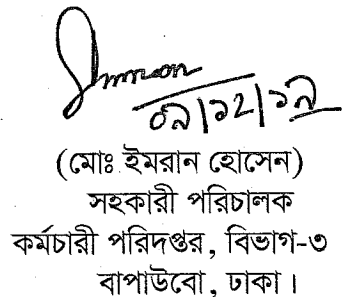 Imran
০৯/১২/১৯
(মোঃ ইমরান হোসেন)
সহকারী পরিচালক
কর্মচারী পরিদপ্তর, বিভাগ-৩
বাপাউবো, ঢাকা।